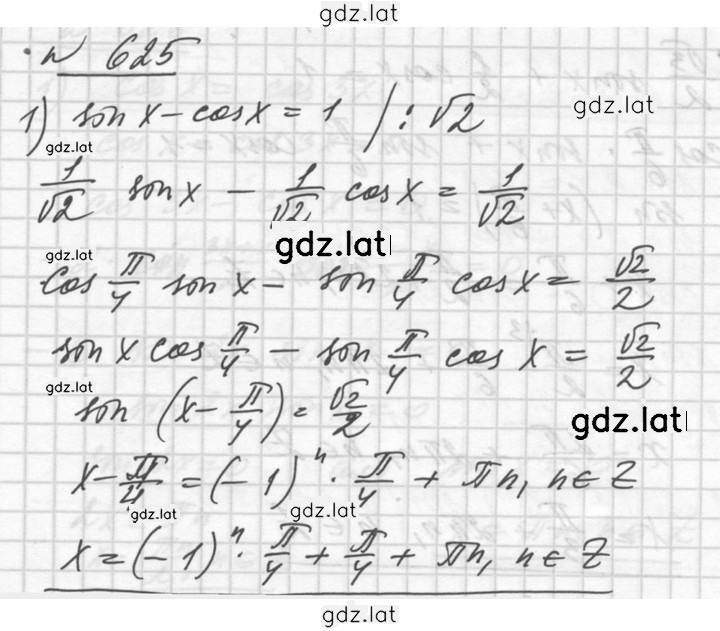 gdz.lat
№ 625
1) sin x - cos x = 1 /: √2
gdz.lat
gdz.lat
1/√2 sin x - 1/√2 cos x = 1/√2
gdz.lat
gdz.lat
cos π/4 sin x - sin π/4 cos x = √2/2
sin x cos π/4 - sin π/4 cos x = √2/2
gdz.lat
sin (x - π/4) = √2/2
gdz.lat
x - π/4 = (-1)ⁿ · π/4 + πn, n ∈ Z
gdz.lat
gdz.lat
x = (-1)ⁿ · π/4 + π/4 + πn, n ∈ Z
gdz.lat